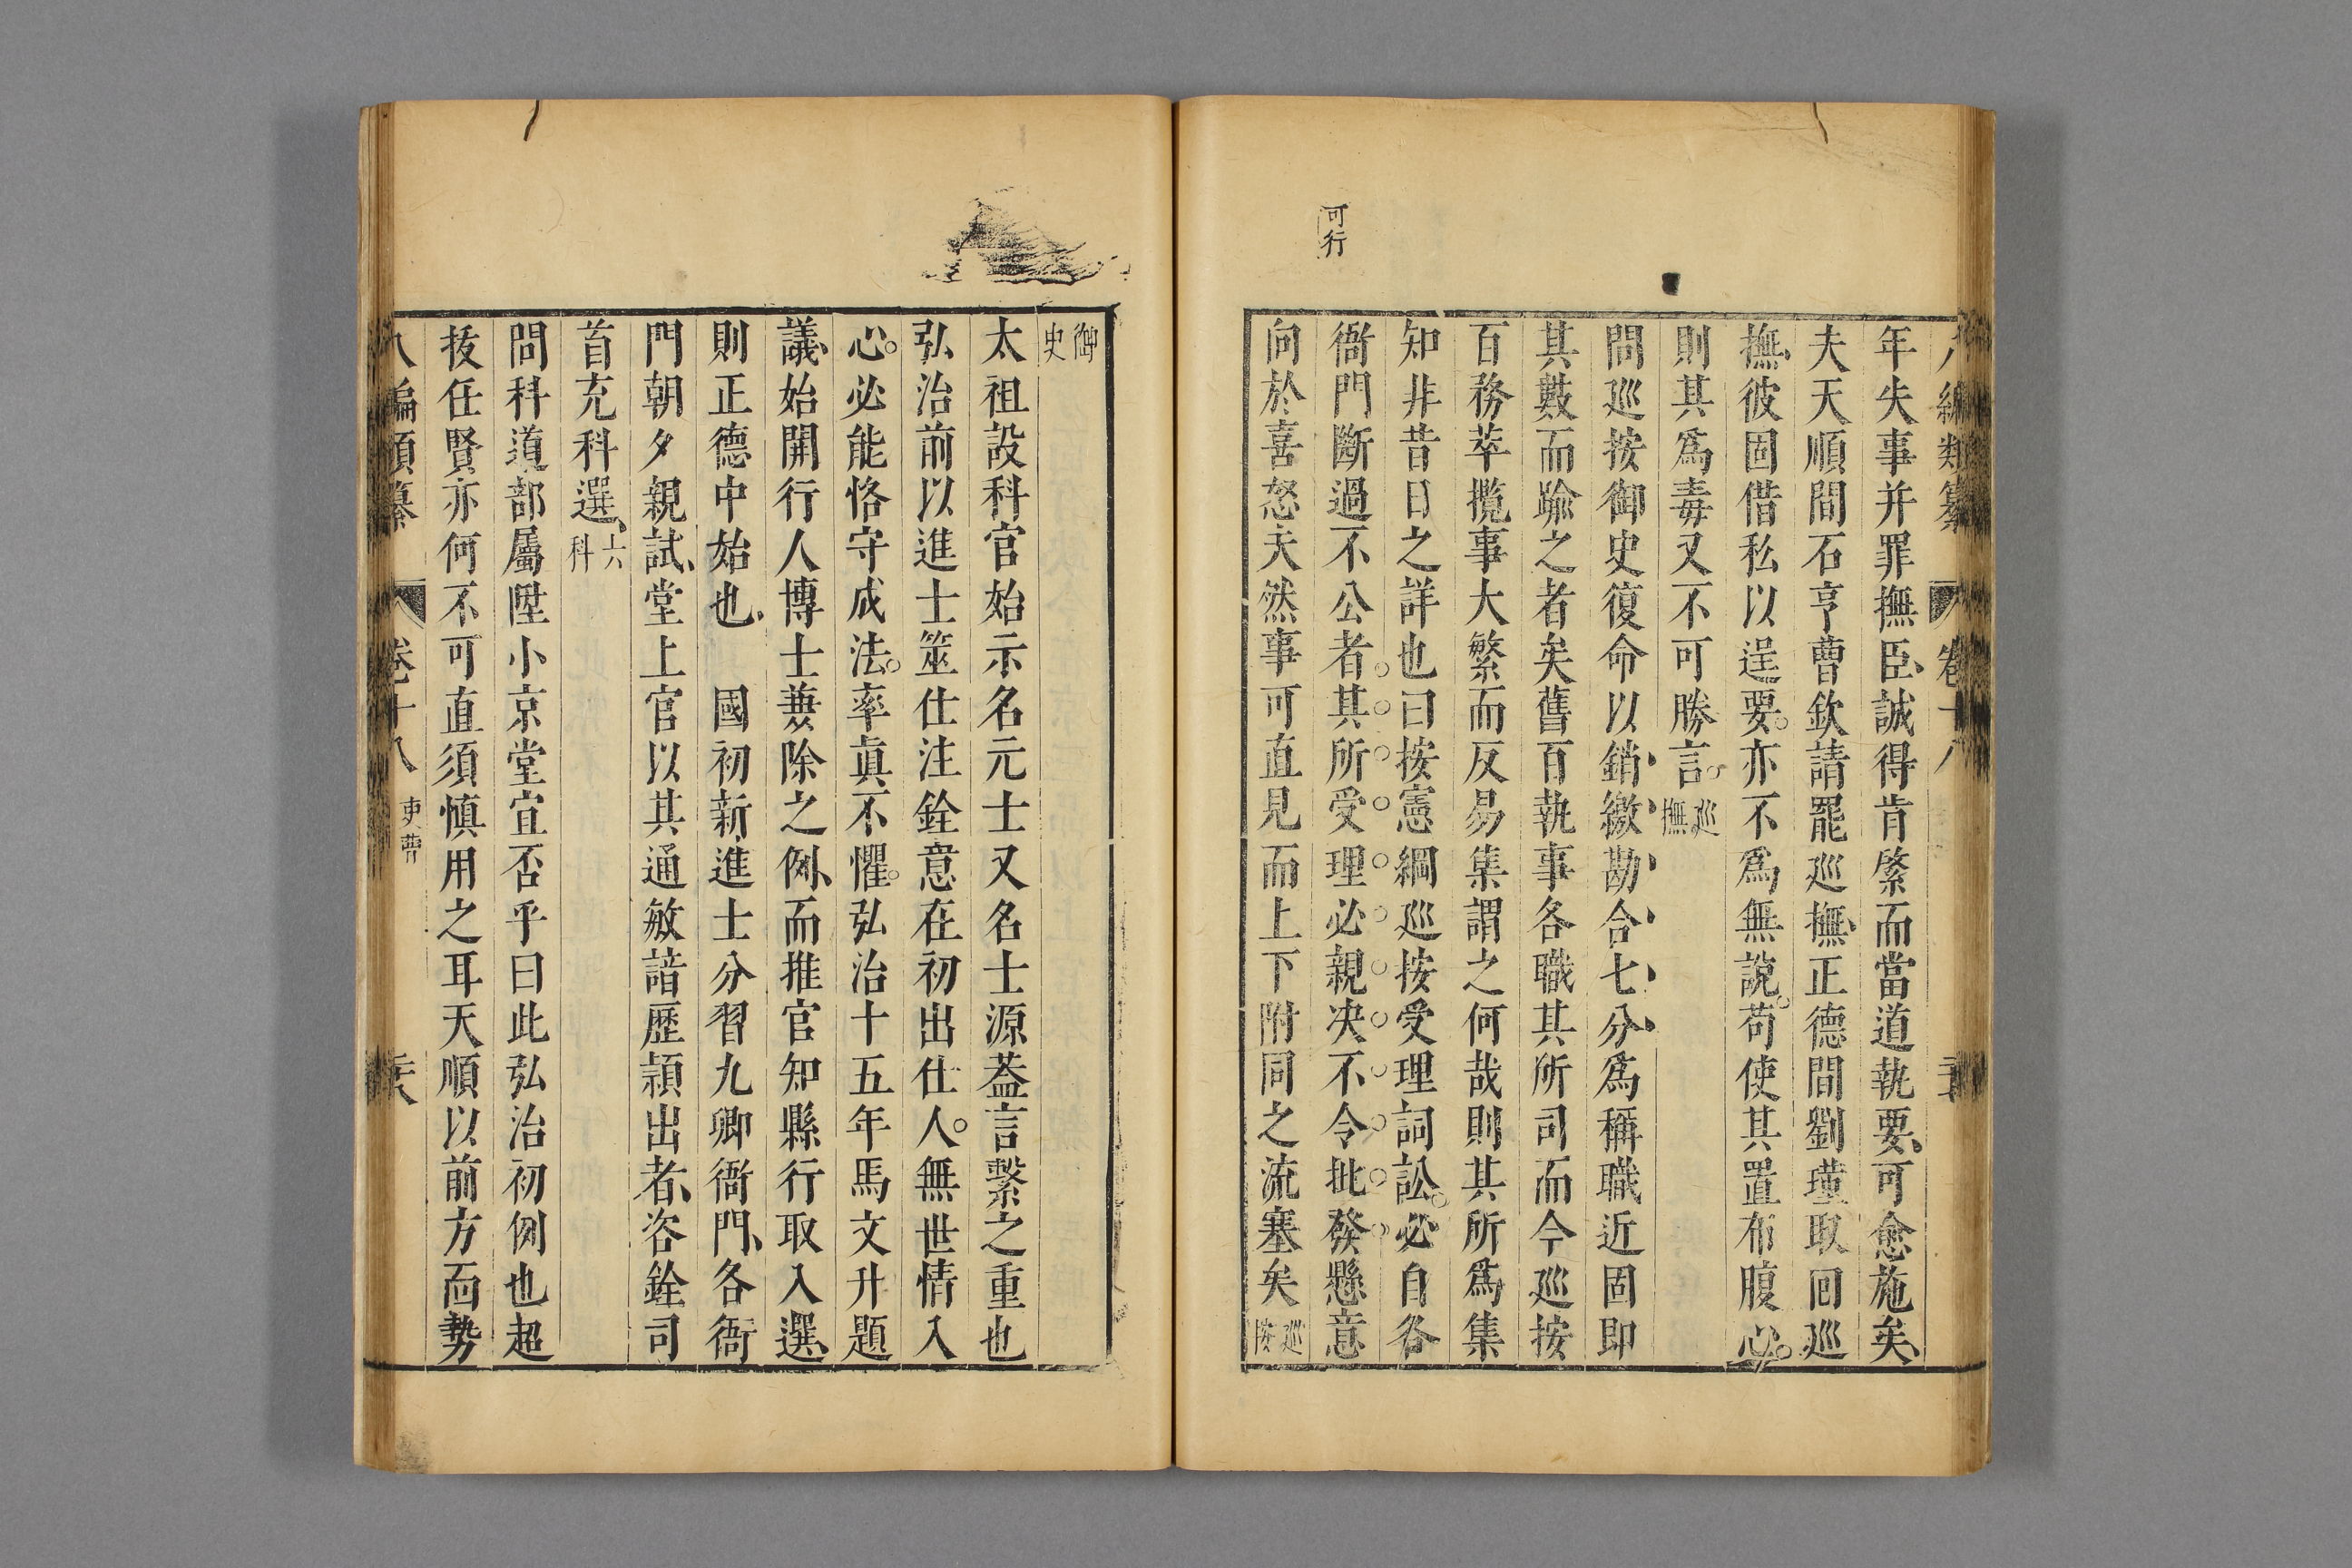 八編類纂 卷十八
年失事并罪撫臣誠得肯綮而當道執要可愈施矣
夫天順間石亨曹欽請罷巡撫正德間劉瑾取回巡
撫彼固借私以逞要亦不爲無說苟使其置布腹心
則其爲毒又不可勝言巡撫
問巡按御史復命以銷繳勘合七分爲稱職近固即
其數而踰之者矣舊百執事各職其所司而今巡按
百務萃攬事大繁而反易集謂之何哉則其所爲集
知非昔日之詳也曰按憲綱巡按受理詞訟必自各
可行
衙門斷過不公者其所受理必親决不令批發懸意
向於喜怒夫然事可直見而上下附同之流塞矣巡按
御史
太祖設科官始示名元士又名士源葢言繫之重也
弘治前以進士筮仕注銓意在初出仕人無世情入
心必能恪守成法率眞不懼弘治十五年馬文升題
議始開行人博士兼除之例而推官知縣行取入選
則正德中始也 國初新進士分習九卿衙門各衙
門朝夕親試堂上官以其通敏諳歷頴出者咨銓司
首充科選六科
問科道部屬陞小京堂宜否乎曰此弘治初例也超
拔任賢亦何不可直須愼用之耳天順以前方面勢
八編類纂 卷十八 吏曹 二十六